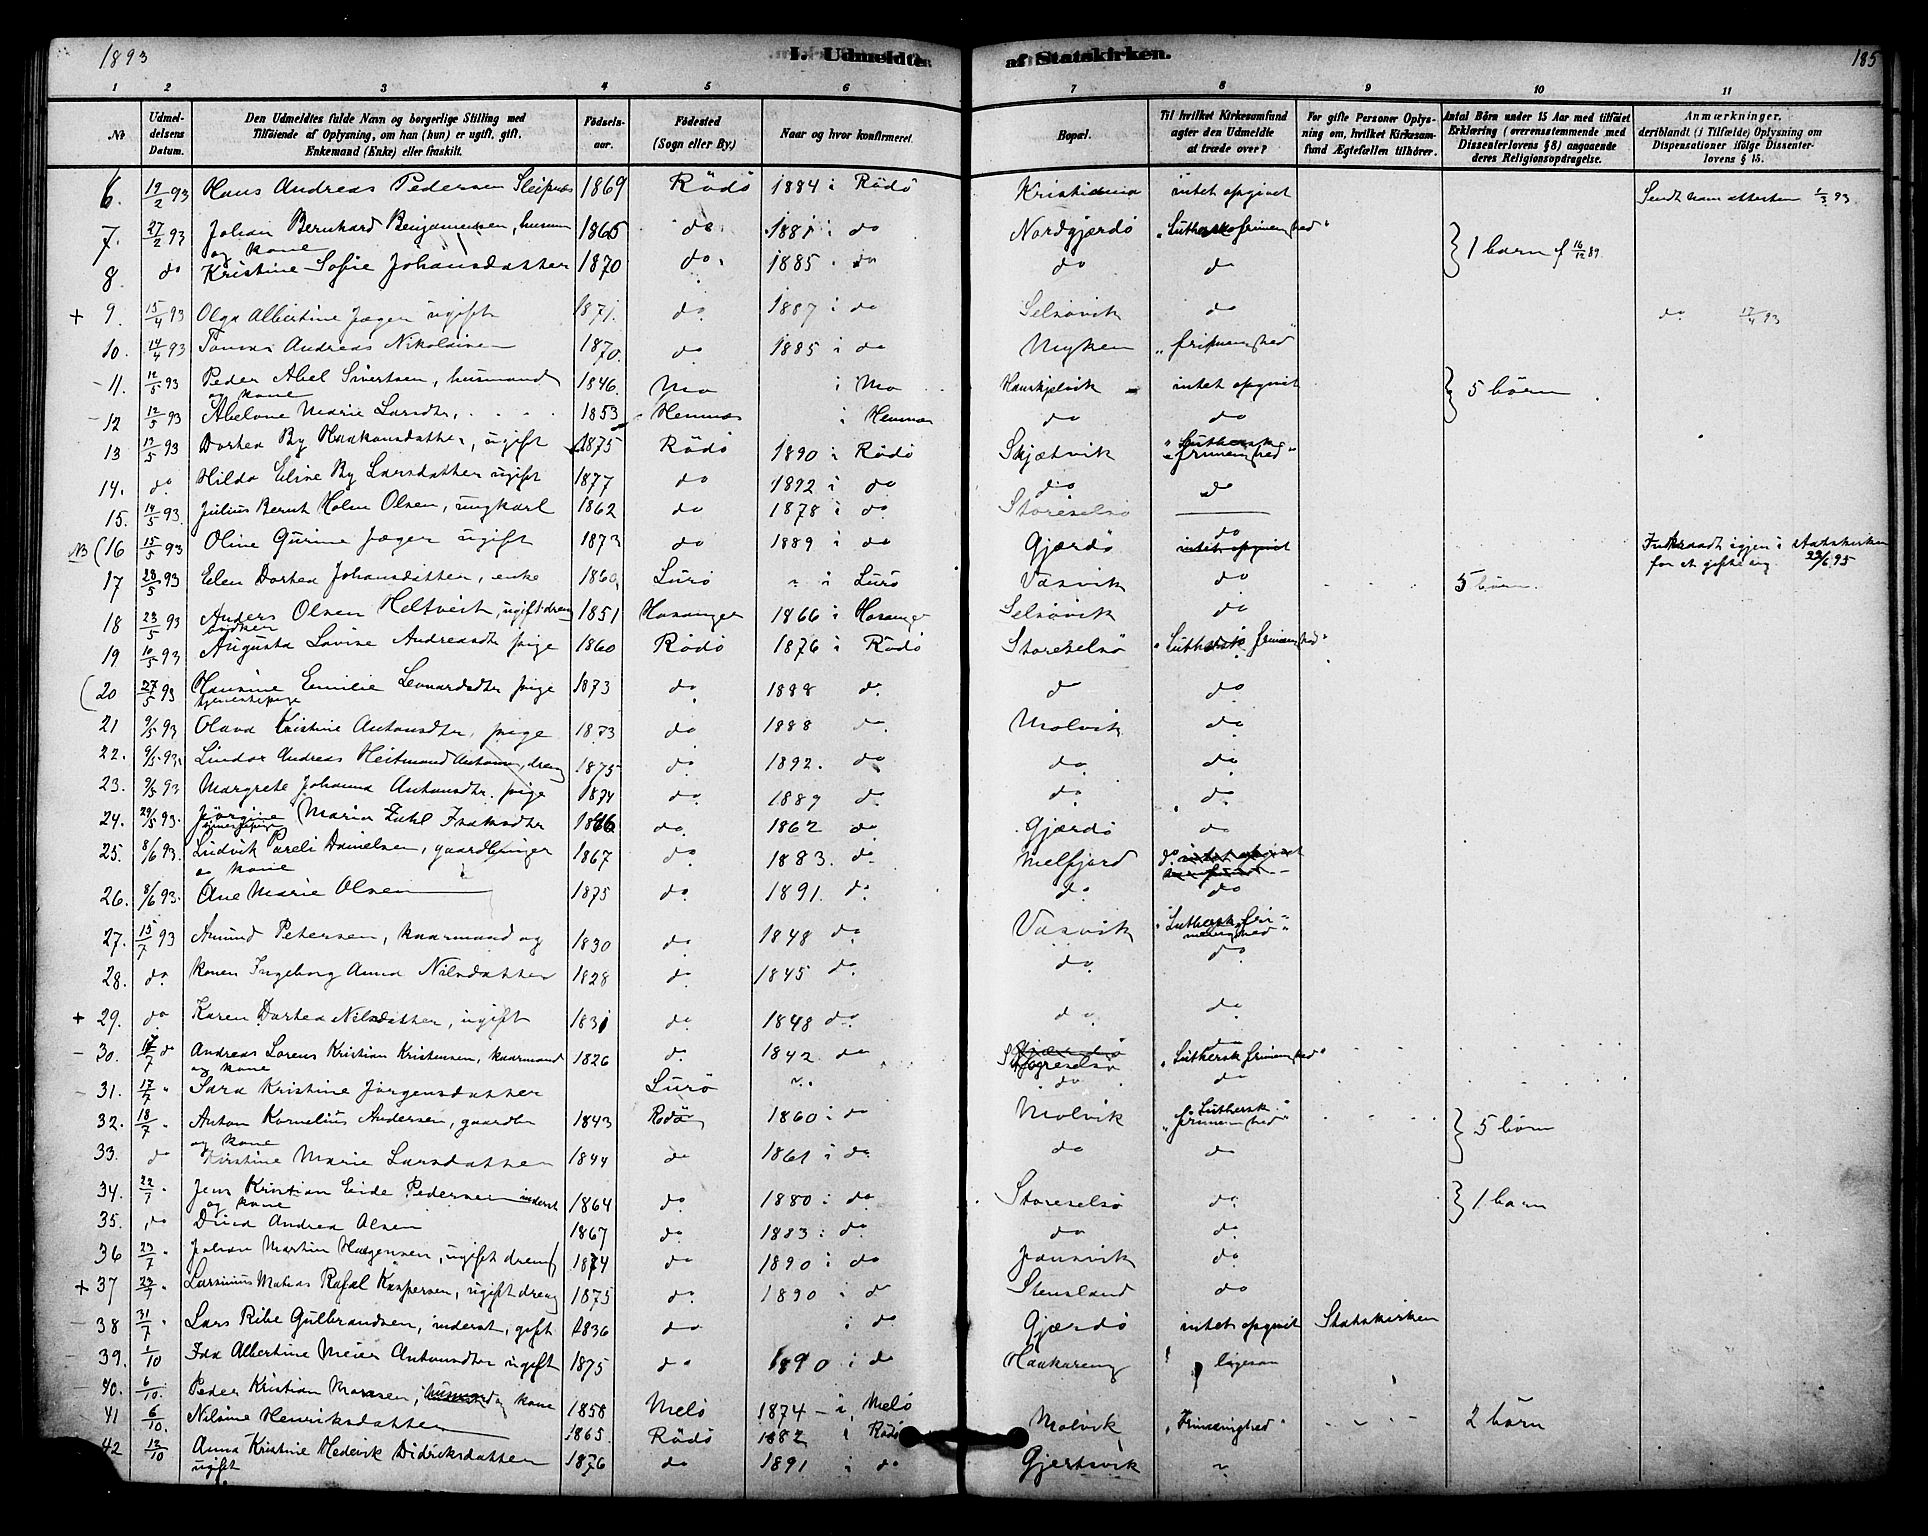 1893
I. Udmeldte af Statskirken.
185
1 2 3 4 5 6 7 8 9 10 11
No
Udmeldelsens Datum.
Den Udmeldtes fulde Navn og borgerlige Stilling med
Tilføiende af Oplysning, om han (hun) er ugift, gift,
Enkemand (Enke) eller fraskilt.
Fødselsaar.
Fødested
(Sogn eller By.)
Naar og hvor konfirmeret.
Bopæl.
Til hvilket Kirkesamfund
agter den Udmeldte
at træde over?
For gifte Personer Oplysning om, hvilket Kirkesamfund Ægtefællen tilhører.
Antal Børn under 15 Aar med tilføiet
Erklæring (overensstemmende med
Dissenterlovens § 8) angaaende
deres Religionsopdragelse.
Anmærkninger,
deriblandt (i Tilfælde) Oplysning om
Dispensationer ifølge Dissenterlovens § 15.
6. 19/2 93 Hans Andreas Pedersen Sleipnes 1869 Rödö 1884 i Rödö Kristiania intet opgivet Sendt ham attesten 1/3 93
7. 27/2 93 Johan Bernhard Benjaminsen, husm og kone 1865 do 1881 i do Nordgjærdö "Luthersk frimenighed" } 1 barn f 16/12 89
8. do Kristine Sofie Johansdatter 1870 do 1885 i do do do
+ 9. 15/4 93 Olga Albertine Jæger ugift 1871 do 1887 i do Selsövik do do 17/4 93
10. 14/4 93 Tomas Andreas Nikolaisen 1870 do 1885 i do Myken "frimenighed"
- 11. 12/5 93 Peder Abel Sivertsen, husmand og kone 1846 Mo i Mo Haukjelvik intet opgivet } 5 börn
- 12 12/5 93 Abelone Marie Larsdtr. 1853 Hemnes i Hemnes do do
13 13/5 93 Dortea By Haakonsdatter, ugift 1875 Rödö 1890 i Rödö Skjætvik "Luthersk frimenighed"
14. do Hilda Eline By Larsdatter ugift 1877 do 1892 i do do do
15. 14/5 93 Julius Bernt Holm Olsen, ungkarl 1862 do 1878 i do Storeselsö
NB (16 15/5 93 Oline Gurine Jæger ugift 1873 do 1889 i do Gjærdö do intet opgivet Indtraadt igjen i statskirken
for at gifte sig 23/6 95
17 23/5 93 Elen Dortea Johansdatter, enke 1860 Lurö " i Lurö Vasvik do 5 börn
18 23/5 93 Anders Olsen Heltveit, ugift dreng 1851 Hosanger 1866 i Hosanger Selsövik do
19 10/5 93 Augusta Lovise Andreasdtr pige 1860 Rödö 1876 i Rödö Storeselsö "Luthersk frimenighed"
(20 27/5 93 Hansine Emilie Leonardsdtr pige tjenestepige 1873 do 1888 do do do
21 9/5 93 Olava Kristine Antonsdtr, pige 1873 do 1888 do Molvik do
22. 9/5 93 Lindor Andreas Heitmand Antonsen, dreng 1875 do 1892. do do do
23. 9/5 93 Margrete Johanna Antonsdtr. pige 1874 do 1889 do do do
24. 29/5 93 Jörgine Maria Zahl Isaksdtr 1846 do 1862 do Gjærdö do
25. 8/6 93. Ludvik Pareli Danielsen, gaardbruger og kone 1867 do 1883. do Melfjord do intet opgivet
26. 8/6 93. Ane Marie Olsen 1875 do 1891. do do do
27. 15/7 93 Amund Petersen, kaarmand og 1830 do 1848 do Vasvik "Luthersk frimenighed"
28. do konen Ingeborg Anna Nilsdatter 1828 do 1845 do do do
+ 29. do Karen Dortea Nilsdatter, ugift 1831 do 1848 do do do
- 30. 17/7 do Andreas Lorens Kristian Kristensen, kaarmand og kone 1826 do 1842 do Storeselsö "Luthersk frimenighed"
- 31. 17/7 " Sara Kristine Jörgensdatter Lurö " do do
32. 18/7 " Anton Kornelius Andersen, gaardbr og kone 1843 Rödö 1860 i do Molvik "Luthersk frimenighed" } 5 börn
33. do Kirstine Marie Larsdatter 1844 do 1861 i do do do
34. 22/7 " Jens Kristian Eide Pedersen inderst og kone 1864 do 1880 i do Storeselsö do } 1 barn
35. do Dina Andrea Olsen 1867 do 1883 i do do do
36 23/7 " Johan Martin Haagensen, ugift dreng 1874 do 1890 i do Jonsvik do
+ 37 23/7 " Larsinius Matias Rafael Kaspersen, ugift dreng 1875 do 1890 i do Stensland do
38 31/7 " Lars Ribe Gulbrandsen, inderst, gift 1836 do i do Gjærdö intet opgivet Statskirken
39. 1/10 Ida Albertine Meier Antonsdtr ugift 1875 do 1890 i do Haakareng ligesaa
40. 6/10. Peder Kristian Monsen, husmand og kone 1858 Melö 1874 i Melö
41 6/10. Nilsine Henriksdatter 1865. Rödö 1882 i Rödö Molvik "Frimenighed" 2 börn
42 12/10 Anna Kristine Hedevik Didriksdatter ugift 1876 do 1891 i do Gjertsvik "